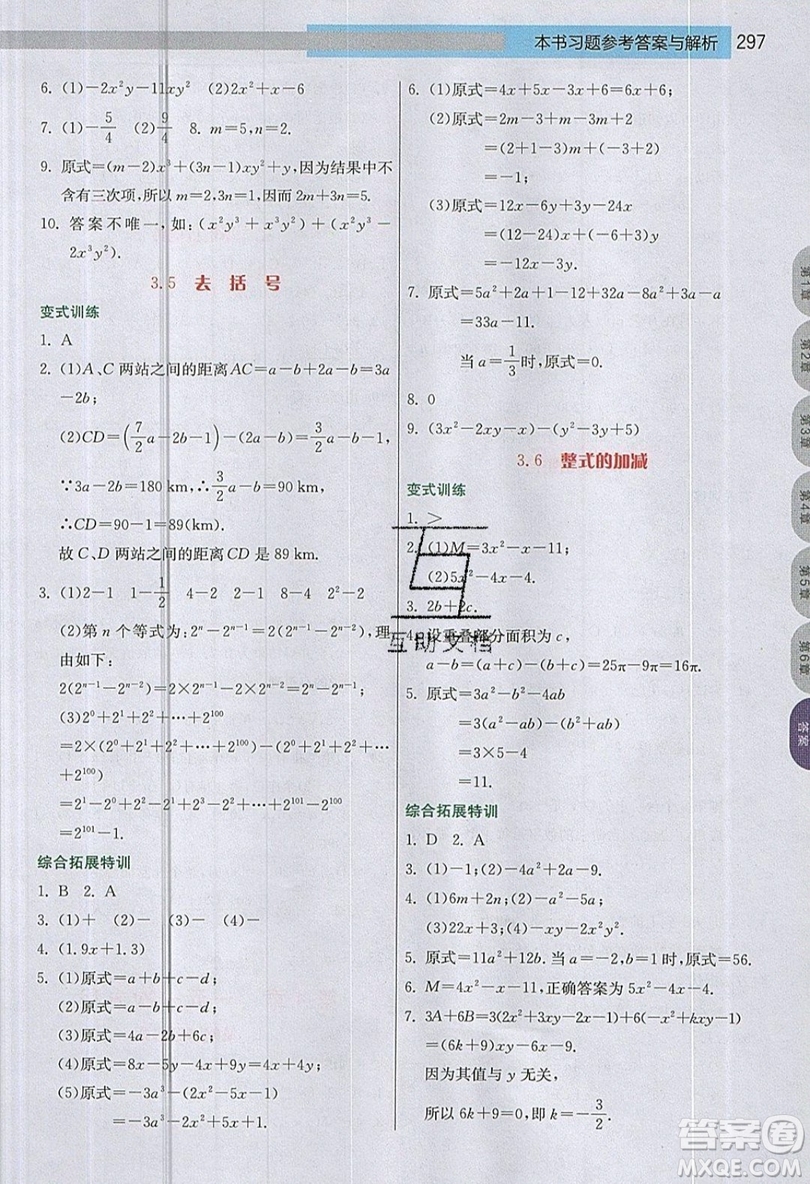 本书习题参考答案与解析 297
6. (1)-2x²y-11xy² (2)2x²+x-6
7. (1)-5/4 (2)9/4 8. m=5,n=2.
9. 原式=(m-2)x³+(3n-1)xy²+y,因为结果中不
含有三次项,所以 m=2,3n=1,因而 2m+3n=5.
10. 答案不唯一,如:(x²y³+x³y²)+(x²y³-
2x³y²).
3.5 去括号
变式训练
1. A
2. (1)A、C 两站之间的距离 AC=a-b+2a-b=3a
-2b;
(2)CD=(7/2a-2b-1)-(1/2a-b)=3/2a-b-1.
∵3a-2b=180 km,∴3/2a-b=90 km.
∴CD=90-1=89(km).
故 C、D 两站之间的距离 CD 是 89 km.
3. (1)2-1 1-1/2 4-2 8-4 1 2 4
(2)第 n 个等式为:2ⁿ-2ⁿ⁻¹=2ⁿ⁻¹,理
由如下:
2(2ⁿ⁻¹-2ⁿ⁻²)=2×2ⁿ⁻¹-2×2ⁿ⁻²=2ⁿ-2ⁿ⁻¹.
(3)2⁰+2¹+2²+…+2¹⁰⁰
=2×(2⁰+2¹+2²+…+2¹⁰⁰)-(2⁰+2¹+2²+…
+2¹⁰⁰)
=2¹-2⁰+2²-2¹+2³-2²+…+2¹⁰¹-2¹⁰⁰
=2¹⁰¹-1.
综合拓展特训
1. B 2. A
3. (1)+ (2)- (3)- (4)-
4. (1.9x+1.3)
5. (1)原式=a+b+c-d;
(2)原式=a-b-c+d;
(3)原式=a-2b+6c;
(4)原式=8x-5y-4x+9y=4x+4y;
(5)原式=-3a³-2x²+5x²+3a³
=-3a³+3a³-2x²+5x²=3x².
6. (1)原式=4x+5x-3x+6=6x+6;
(2)原式=2m-3+m-3m+2
=(2+1-3)m-3+2
=-1;
(3)原式=12x-6y+3y-24x
=(12-24)x+(-6+3)y
=-12x-3y.
7. 原式=5a²+2a+1-12+32a-8a²+3a²-a
=33a-11.
当 a=1/3时,原式=0.
8. 0
9. (3x²-2xy-x)-(y²-3y+5)
3.6 整式的加减
变式训练
1. >
2. (1)M=3x²-x-11;
(2)5x²-4x-4.
3. 2b+2c.
4. 设重叠部分面积为 c,
a-b=(a+c)-(b+c)=25π-9π=16π.
5. 原式=3a²-b²-4ab
=3(a²-ab)-(b²+ab)
=3×5-4
=11.
综合拓展特训
1. D 2. A
3. (1)-1;(2)-4a²+2a-9.
4. (1)6m+2n;(2)-2a²-5a;
(3)22x+3;(4)-2x²+x²y².
5. 原式=11a²+12b. 当 a=-2,b=1时,原式=56.
6. M=4x²-x-11,正确答案为 5x²-4x-4.
7. 3A+6B=3(2x²+3xy-2x-1)+6(-x²+kxy-1)
=(6k+9)xy-6x-9.
因为其值与 y 无关,
所以 6k+9=0,即 k=-3/2.
第1章
第2章
第3章
第4章
第5章
第6章
答案
互助文档
答案圈
MXQE.COM